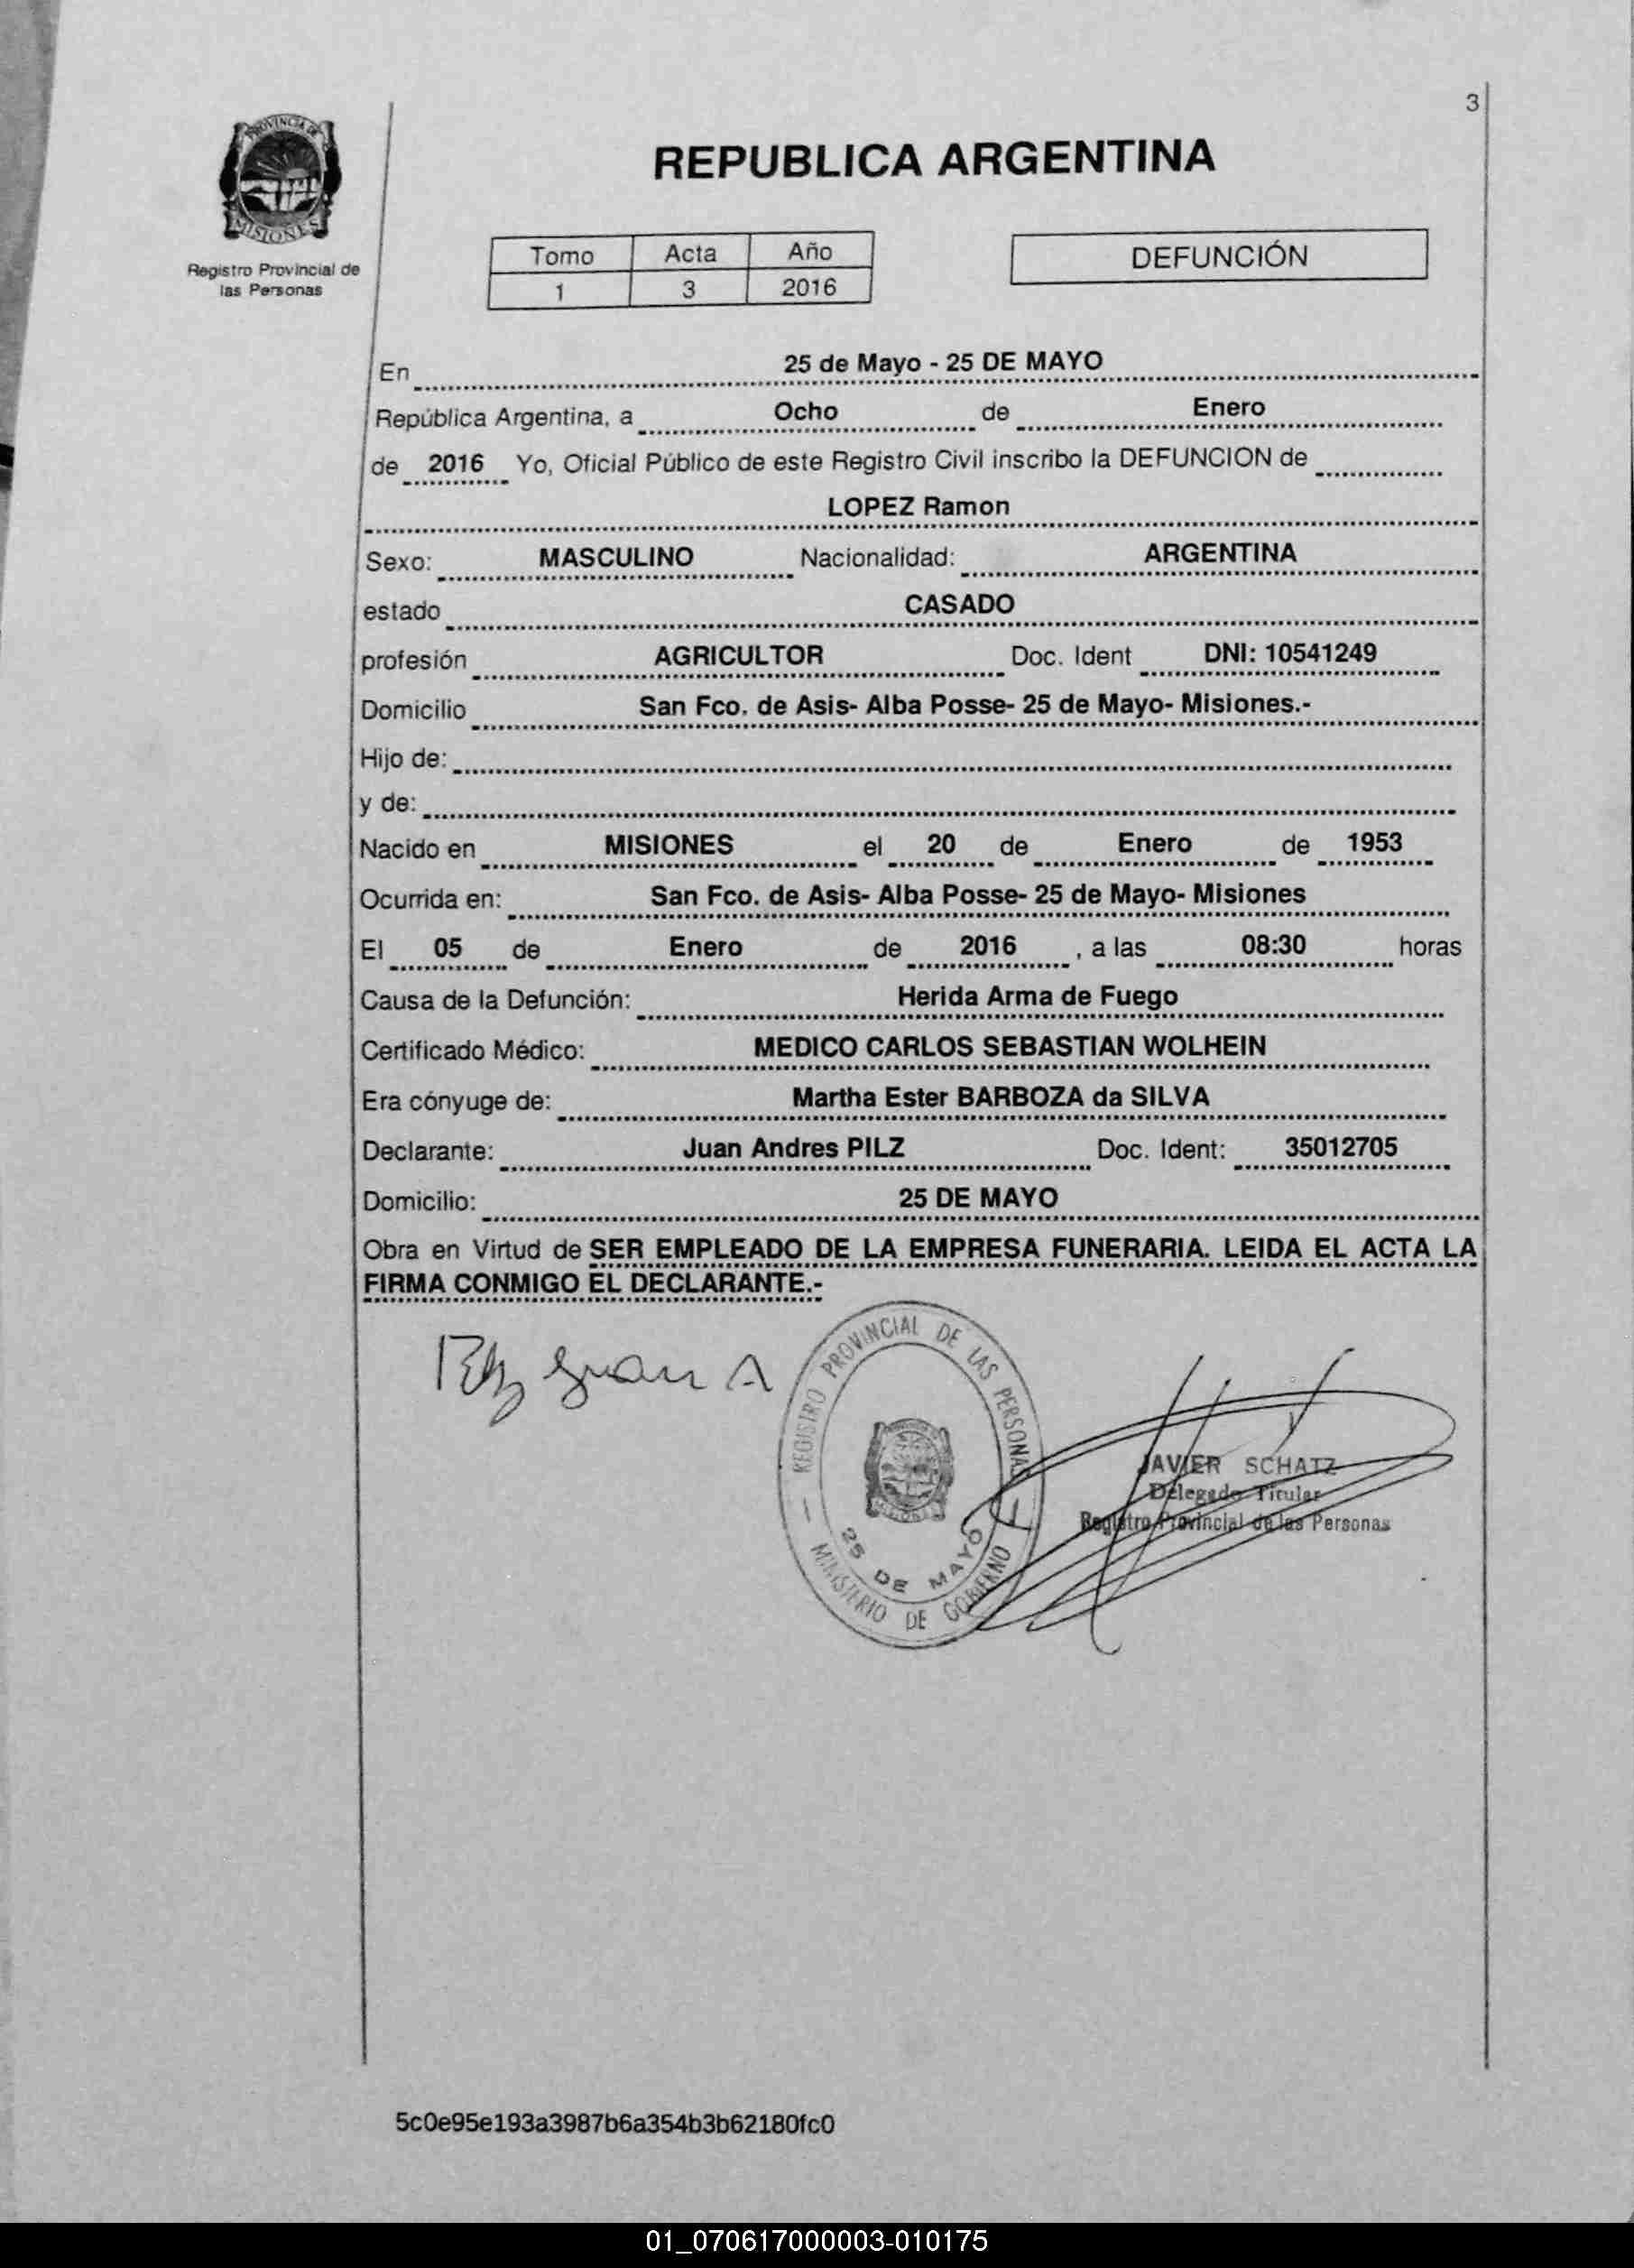 3
PROVINCIA DE
MISIONES
Registro Provincial de
las Personas
REPUBLICA ARGENTINA
Tomo Acta Año
1 3 2016
DEFUNCIÓN
En 25 de Mayo - 25 DE MAYO
República Argentina, a Ocho de Enero
de 2016 Yo, Oficial Público de este Registro Civil inscribo la DEFUNCION de
LOPEZ Ramon
Sexo: MASCULINO Nacionalidad: ARGENTINA
estado CASADO
profesión AGRICULTOR Doc. Ident DNI: 10541249
Domicilio San Fco. de Asis- Alba Posse- 25 de Mayo- Misiones.-
Hijo de:
y de:
Nacido en MISIONES el 20 de Enero de 1953
Ocurrida en: San Fco. de Asis- Alba Posse- 25 de Mayo- Misiones
El 05 de Enero de 2016 , a las 08:30 horas
Causa de la Defunción: Herida Arma de Fuego
Certificado Médico: MEDICO CARLOS SEBASTIAN WOLHEIN
Era cónyuge de: Martha Ester BARBOZA da SILVA
Declarante: Juan Andres PILZ Doc. Ident: 35012705
Domicilio: 25 DE MAYO
Obra en Virtud de SER EMPLEADO DE LA EMPRESA FUNERARIA. LEIDA EL ACTA LA
FIRMA CONMIGO EL DECLARANTE.-
Pilz Juan A
REGISTRO PROVINCIAL DE LAS PERSONAS
25 DE MAYO
MINISTERIO DE GOBIERNO
JAVIER SCHATZ
Delegado Titular
Registro Provincial de las Personas
5c0e95e193a3987b6a354b3b62180fc0
01_070617000003-010175